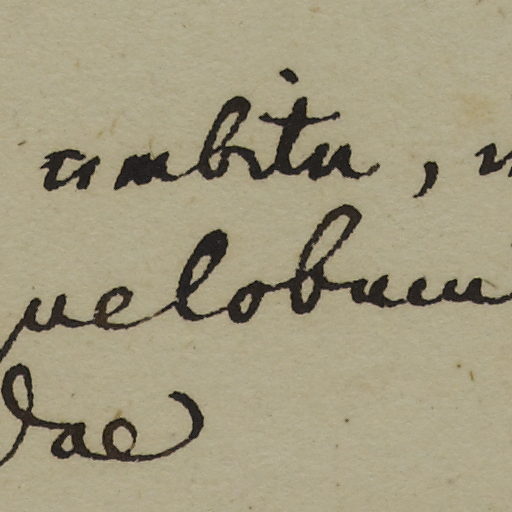 ambitu,
uelobum
dae